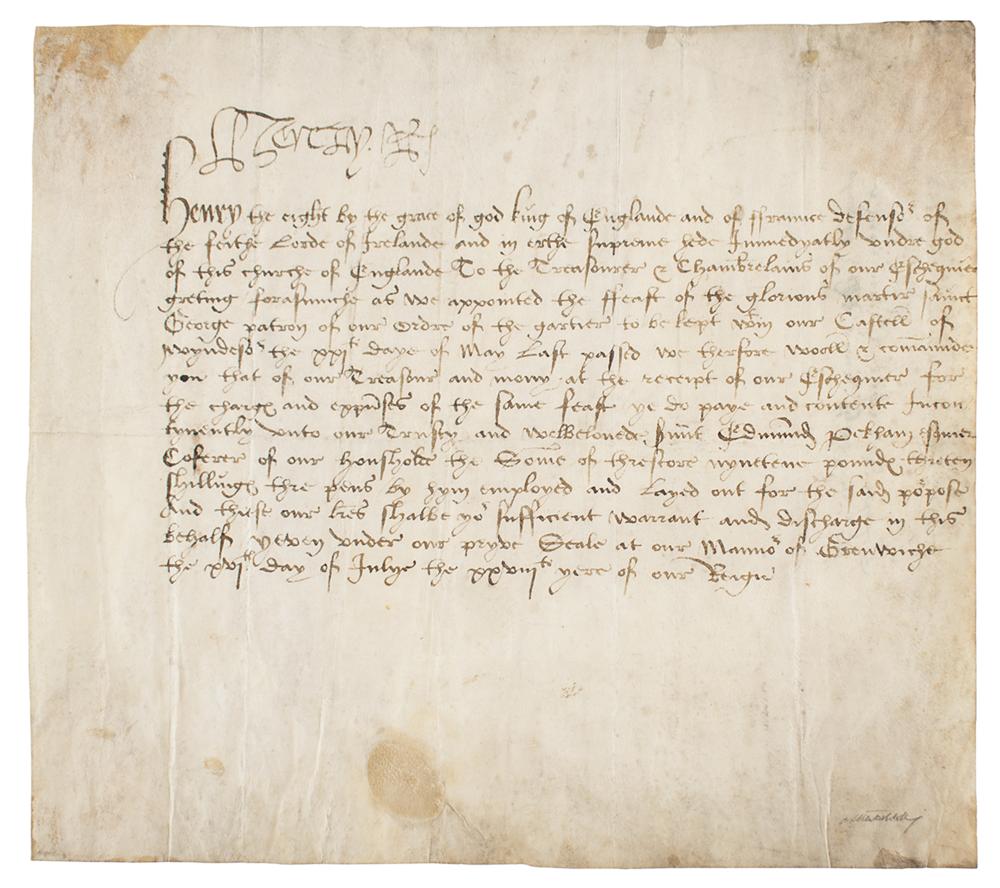 Henry R
Henry the eight by the grace of god king of Englande and of ffraunce defensor of
the feithe Lorde of Irelande and in erthe supreme hede Immedyatly undre god
of this churche of Englande To the Treasourer & Chambrelains of our Eschequier
greting forasmuche as we appointed the ffeast of the glorious martir saint
George patron of our Ordre of the gartier to be kept wtin our Castell of
Wyndesor the xxith daye of May Last passed we therfore wooll & commaunde
you that of our Treasour and mony at the receipt of our Eschequier for
the charges and expenses of the same feast ye do paye and contente Incon
tynently unto our Trusty and welbeloved Edmund Pekham squier
Coferer of our housholde the Somme of threscore nynetene poundes threten
shillinges thre pens by hym employed and Layed out for the said porpose
And these our lres shalbe yor sufficient warrant and discharge in this
behalf yeven undre our pryve Seale at our Mannor of Grenwiche
the xvith day of Julye the xxviiith yere of our Reigne